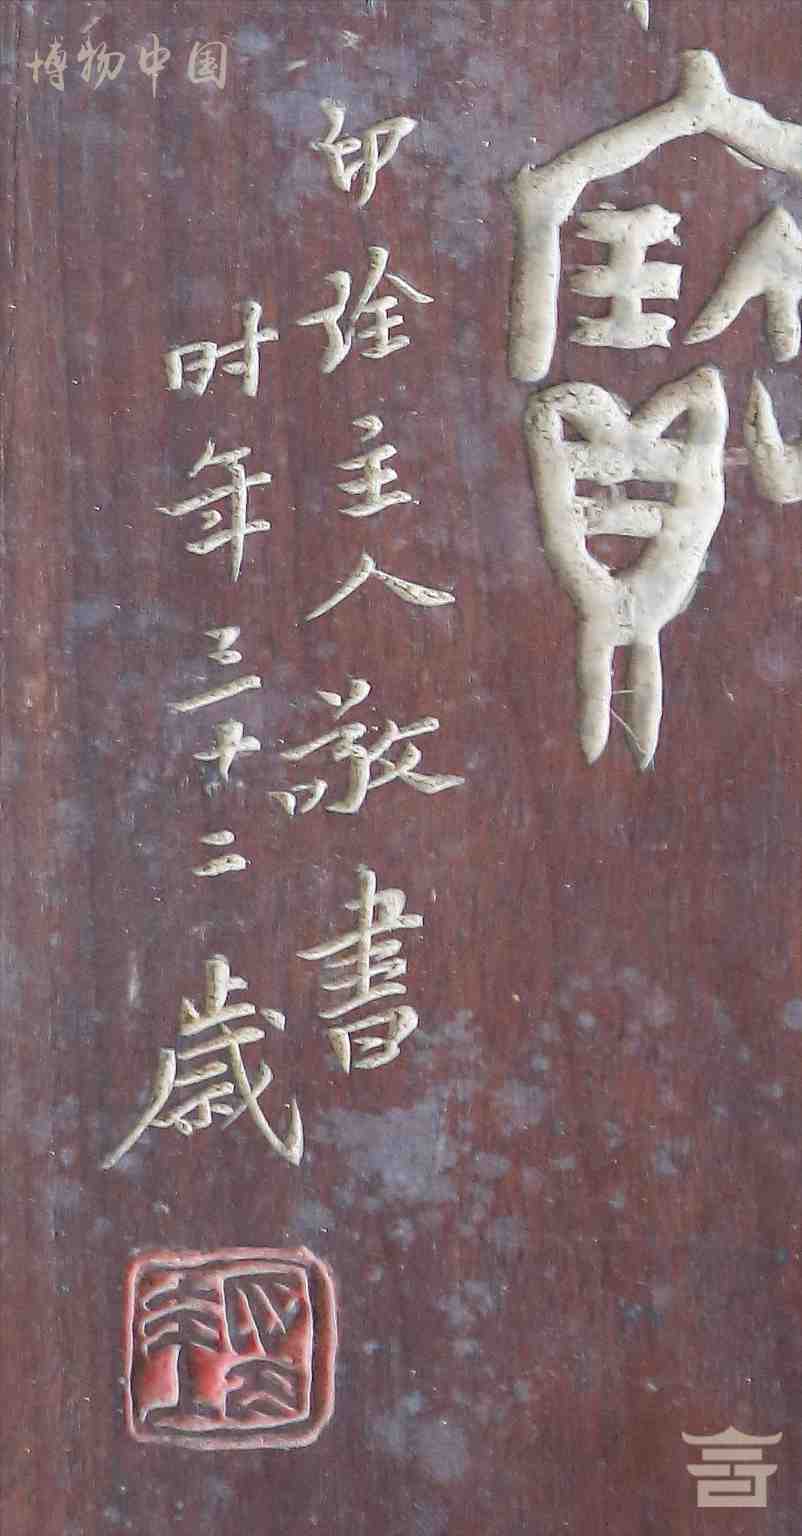 博物中国
寶
印詮主人敬書
时年三十二歲